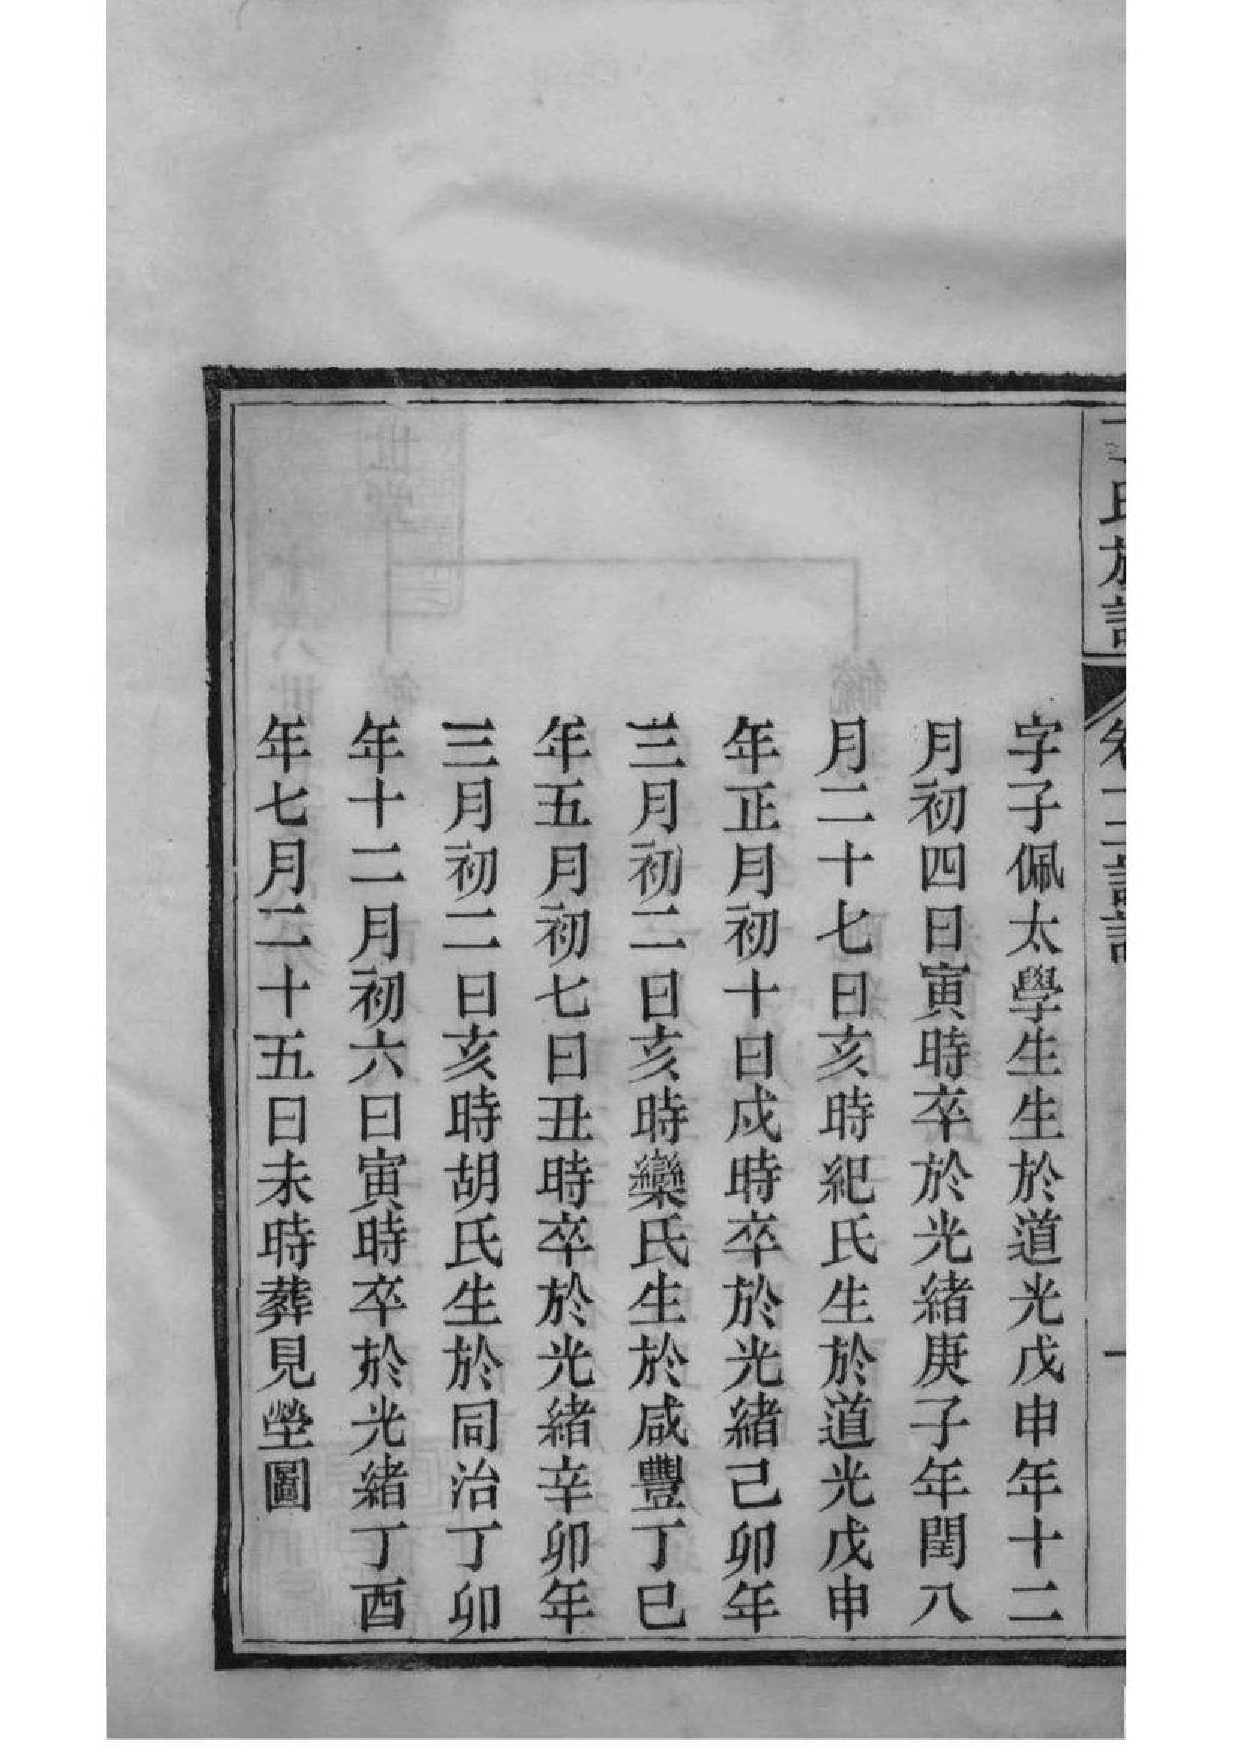 氏族譜
卷二
字子佩太學生生於道光戊申年十二
月初四日寅時卒於光緒庚子年閏八
月二十七日亥時紀氏生於道光戊申
年正月初十日戍時卒於光緒己卯年
三月初二日亥時欒氏生於咸豐丁巳
年五月初七日丑時卒於光緒辛卯年
三月初二日亥時胡氏生於同治丁卯
年十二月初六日寅時卒於光緒丁酉
年七月二十五日未時葬見塋圖